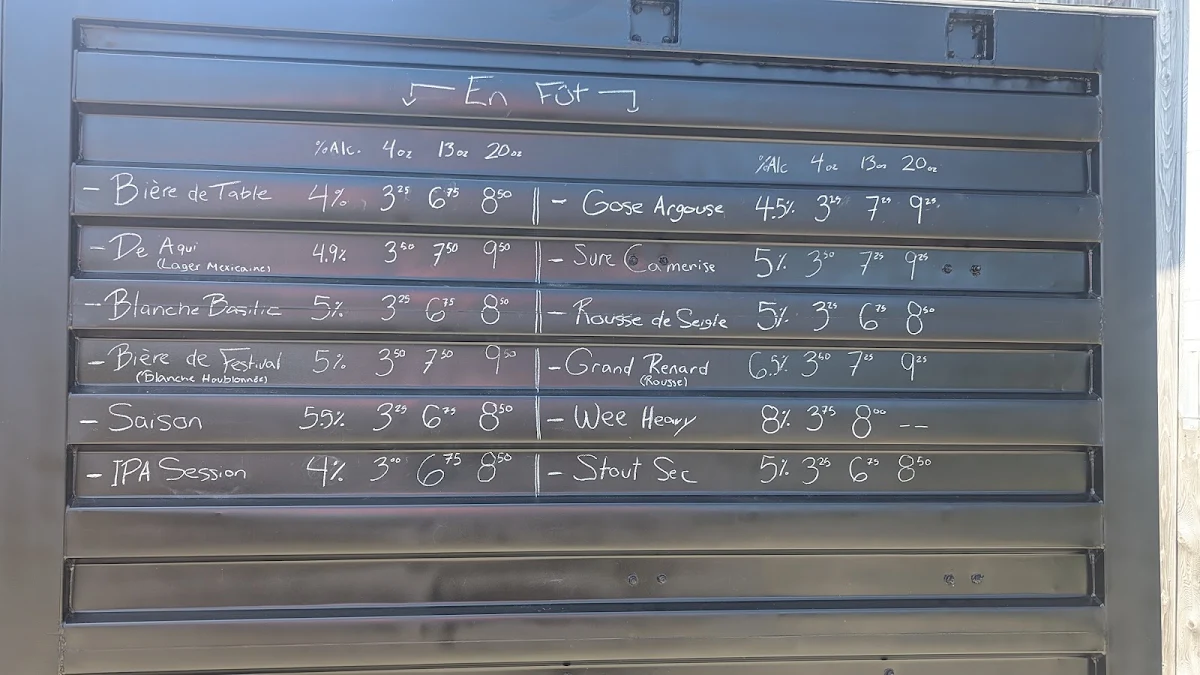 En Fût
%Alc. 4oz 13oz 20oz
- Bière de Table 4% 3²⁵ 6⁷⁵ 8⁵⁰
- De Aqui 4.9% 3⁵⁰ 7⁵⁰ 9⁵⁰
(Lager Mexicaine)
- Blanche Basilic 5% 3²⁵ 6⁷⁵ 8⁵⁰
- Bière de Festival 5% 3⁵⁰ 7⁵⁰ 9⁵⁰
(Blanche Houblonnée)
- Saison 5.5% 3²⁵ 6⁷⁵ 8⁵⁰
- IPA Session 4% 3⁰⁰ 6⁷⁵ 8⁵⁰
%Alc 4oz 13oz 20oz
- Gose Argouse 4.5% 3²⁵ 7²⁵ 9²⁵
- Sure Camerise 5% 3⁵⁰ 7²⁵ 9²⁵
- Rousse de Seigle 5% 3²⁵ 6⁷⁵ 8⁵⁰
- Grand Renard 6.5% 3⁵⁰ 7²⁵ 9²⁵
(Rousse)
- Wee Heavy 8% 3⁷⁵ 8⁰⁰ --
- Stout Sec 5% 3²⁵ 6⁷⁵ 8⁵⁰